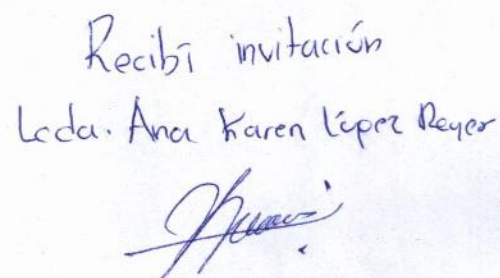 Recibí invitación
Lcda. Ana Karen López Reyes